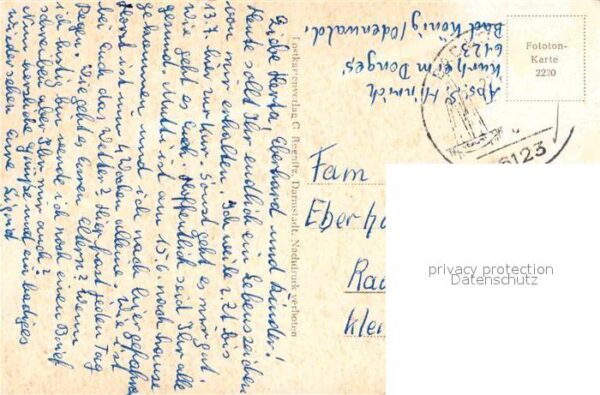 Liebe Herta, Eberhard und Kinder!
Heute sollt Ihr endlich ein Lebenszeichen
von mir erhalten. Ich weile z.Zt. bis
13.7. hier zur Kur. Sonst geht es mir gut.
Wie geht es Euch. Hoffentlich seid Ihr alle
gesund. Mutti ist am 15.6. nach Hause
gekommen und ich nach hier gefahren
Horst ist nun 4 Wochen alleine. Wie ist
bei Euch das Wetter? Hier fast jeden Tag
Regen. Wie geht es Euren Eltern? Wenn
ich lustig bin werde ich noch einen Brief
schreiben aber Ihr mir auch?
Nun herzliche Grüße und ein baldiges
Wiedersehen Eure Sigrid
Postkartenverlag G. Darmstadt. Nachdruck verboten
Abs. S. Hinrich
Kurheim Dönges
6123
Bad König/Odenwald
Fototon-
Karte
2220
6123
Fam
Eberha
Rad
Klei
privacy protection
Datenschutz